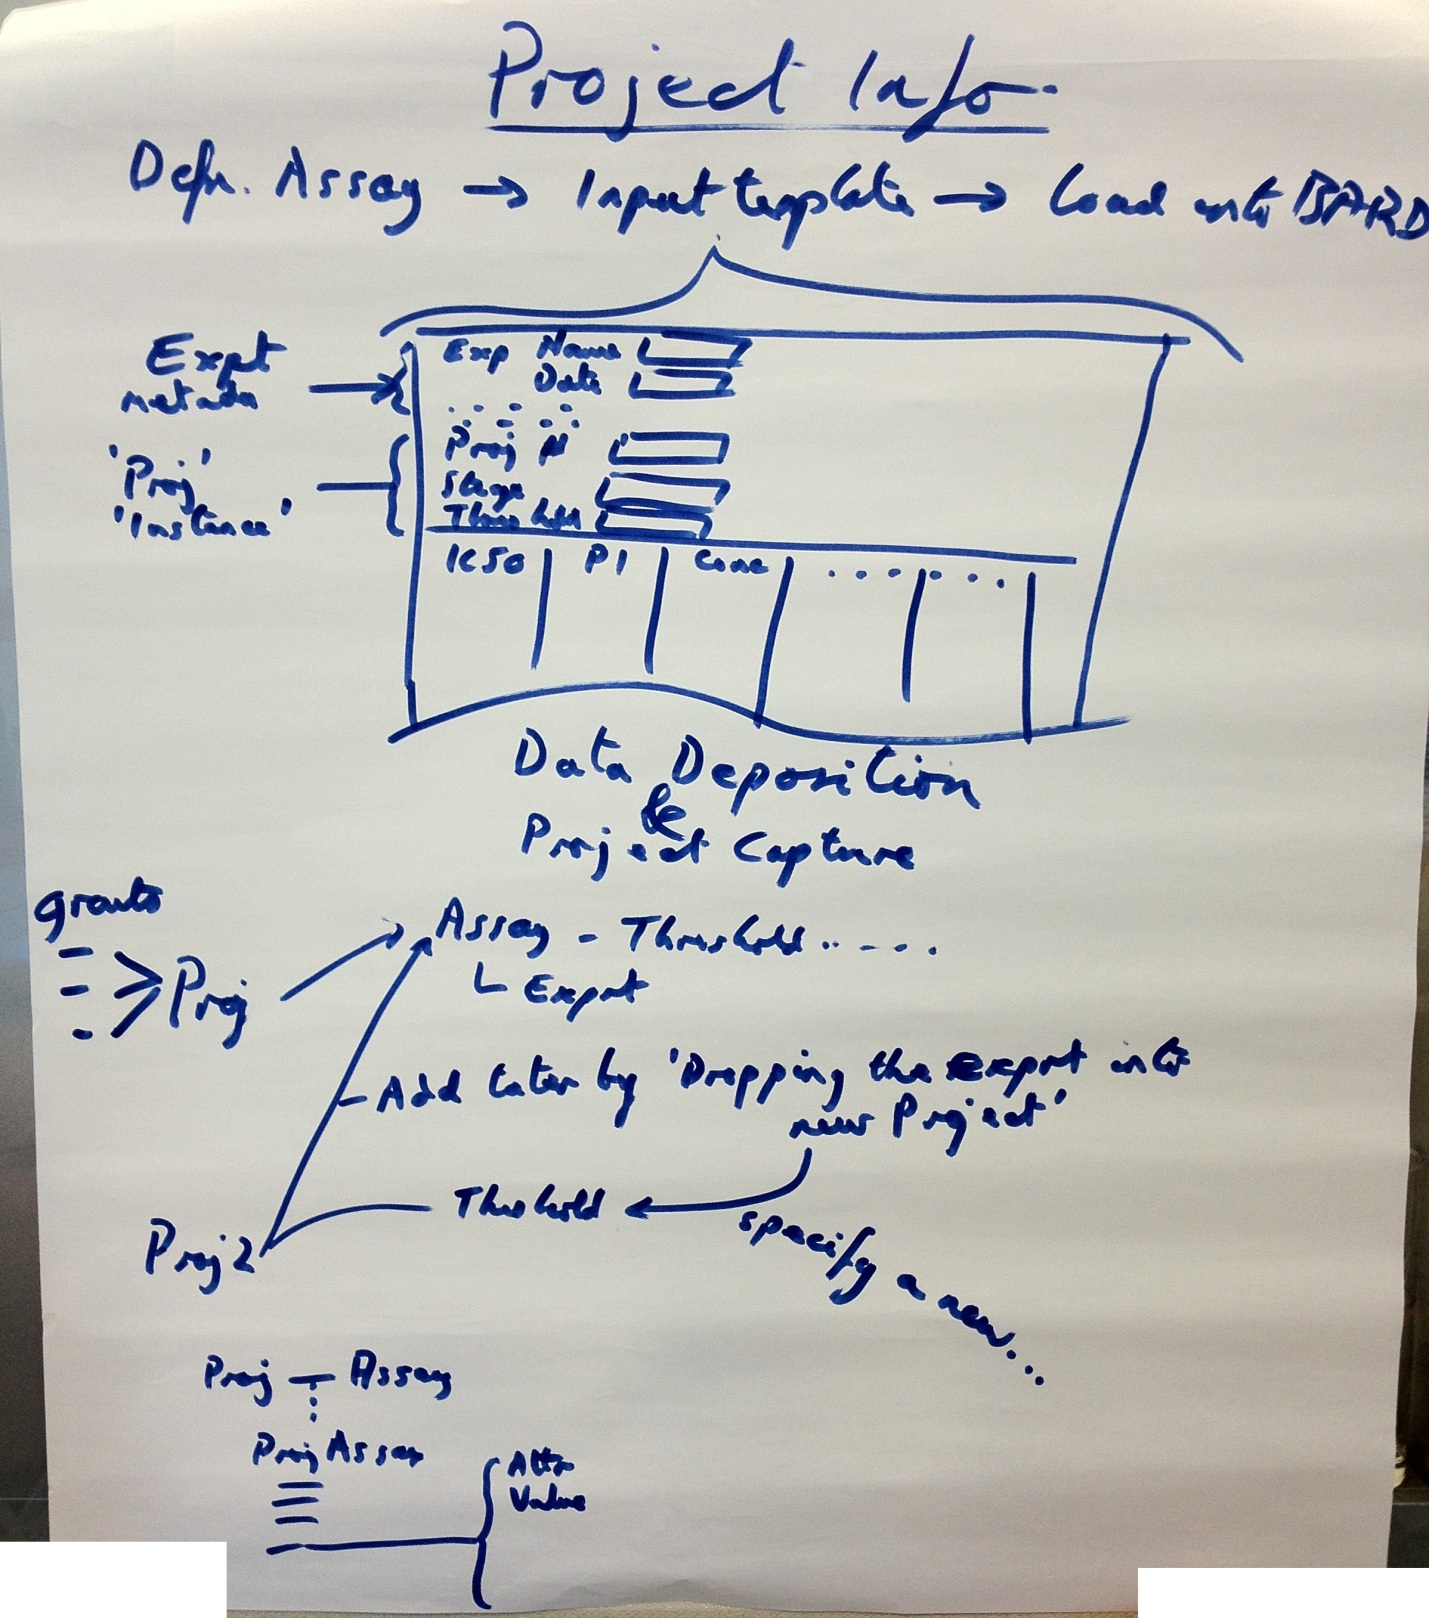 Project Info
Defn. Assay → Input template → Load into BARD
Expt
metadata
Exp Name
Date
'Proj'
'Instance'
Proj #
Stage
Threshold
IC50 PI Conc . . . . . . .
Data Deposition
&
Project Capture
grants
Proj
Assay - Threshold .. - - . .
Expnt
- Add later by 'Dropping the expnt into
new Project'
Threshold
specify a new...
Proj 2
Proj - Assay
Proj Assay
Attr
Value